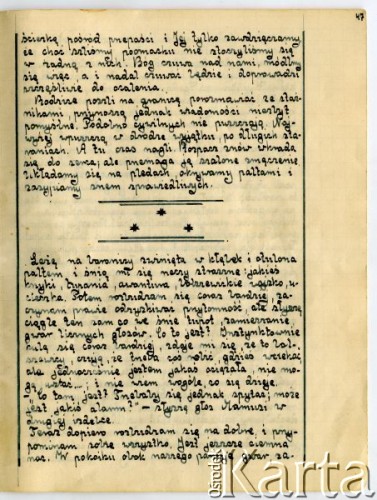 47
ścieżkę pośród przepaści i Jej tylko zawdzięczamy
że choć szliśmy poomacku nie stoczyliśmy się
w żadną z nich. Bóg czuwa nad nami, módlmy
się więc, a i nadal czuwać będzie i doprowadzi
szczęśliwie do ocalenia.
Rodzice poszli na granicę porozmawiać ze stra-
żnikami, przynoszą jednak wiadomości niezbyt
pomyślne. Podobno cywilnych nie puszczają. Naj-
wyżej puszczą w drodze wyjątku po długich sta-
raniach. A tu czas nagli. Rozpacz znów wkrada
się do serca, ale przemaga ją szalone zmęczenie
układamy się na pledach, okrywamy paltami i
zasypiamy snem sprawiedliwych.
*
* *
Leżę na zwinięta w kłębek i otulona
paltem i śnią mi się rzeczy straszne: jakieś
krzyki, awantura, bolszewickie wojsko, u-
cieczka. Potem rozbudzam się coraz bardziej, za-
czynam prawie odzyskiwać przytomność, ale słyszę
ciągle ten sam co we śnie turot, zamieszanie,
gwar licznych głosów. Co to jest? Instynktownie
kulę się coraz bardziej, zdaje mi się, że to bol-
szewicy, czuję, że trzeba coś robić, gdzieś uciekać
ale jednocześnie jestem jakaś ociężała, nie mo-
gę wstać...; i nie wiem wogóle, co się dzieje.
- "Co tam, jest? Trzebaby się jednak spytać; może
jest jakiś alarm?" - słyszę głos Mamusi w
drugiej izdebce.
Teraz dopiero rozbudzam się na dobre, i przy-
pominam sobie wszystko. Jest jeszcze ciemna
noc. W pokoiku obok naszego panuje gwar za-
ośrodek
Karta